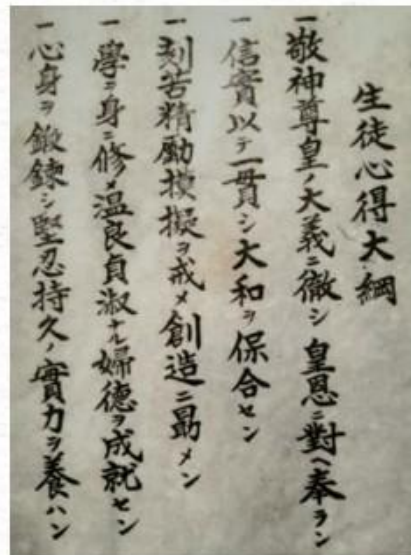 生徒心得大綱
一敬神尊皇ノ大義ニ徹シ皇恩ニ對ヘ奉ラン
一信實以テ一貫シ大和ヲ保合セン
一刻苦精励模擬ヲ戒メ創造ニ勗メン
一學ヲ身ニ修メ温良貞淑ナル婦德ヲ成就セン
一心身ヲ鍛錬シ堅忍持久ノ實力ヲ養ハン